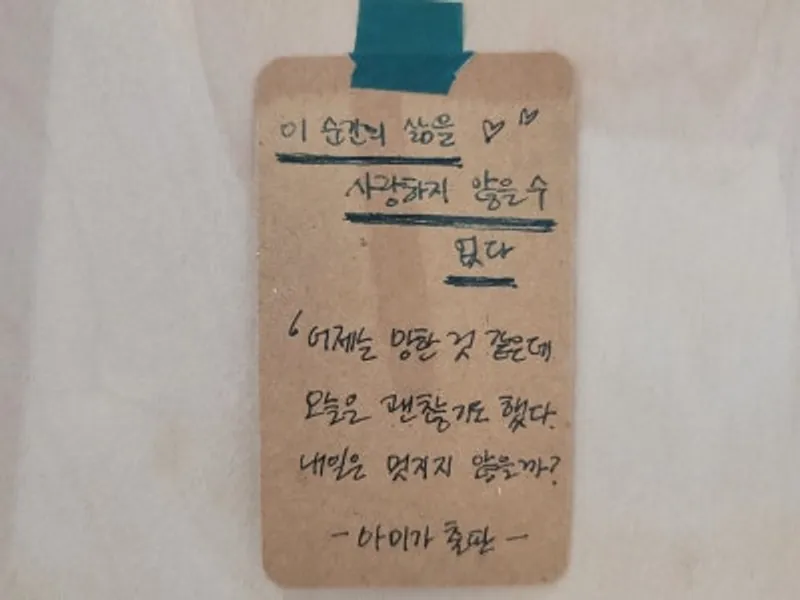 이 순간의 삶을 ♡ ♡
사랑하지 않을 수
없다
‘어제는 망한 것 같은데
오늘은 괜찮기도 했다.
내일은 멋지지 않을까?
- 아미가 출판 -